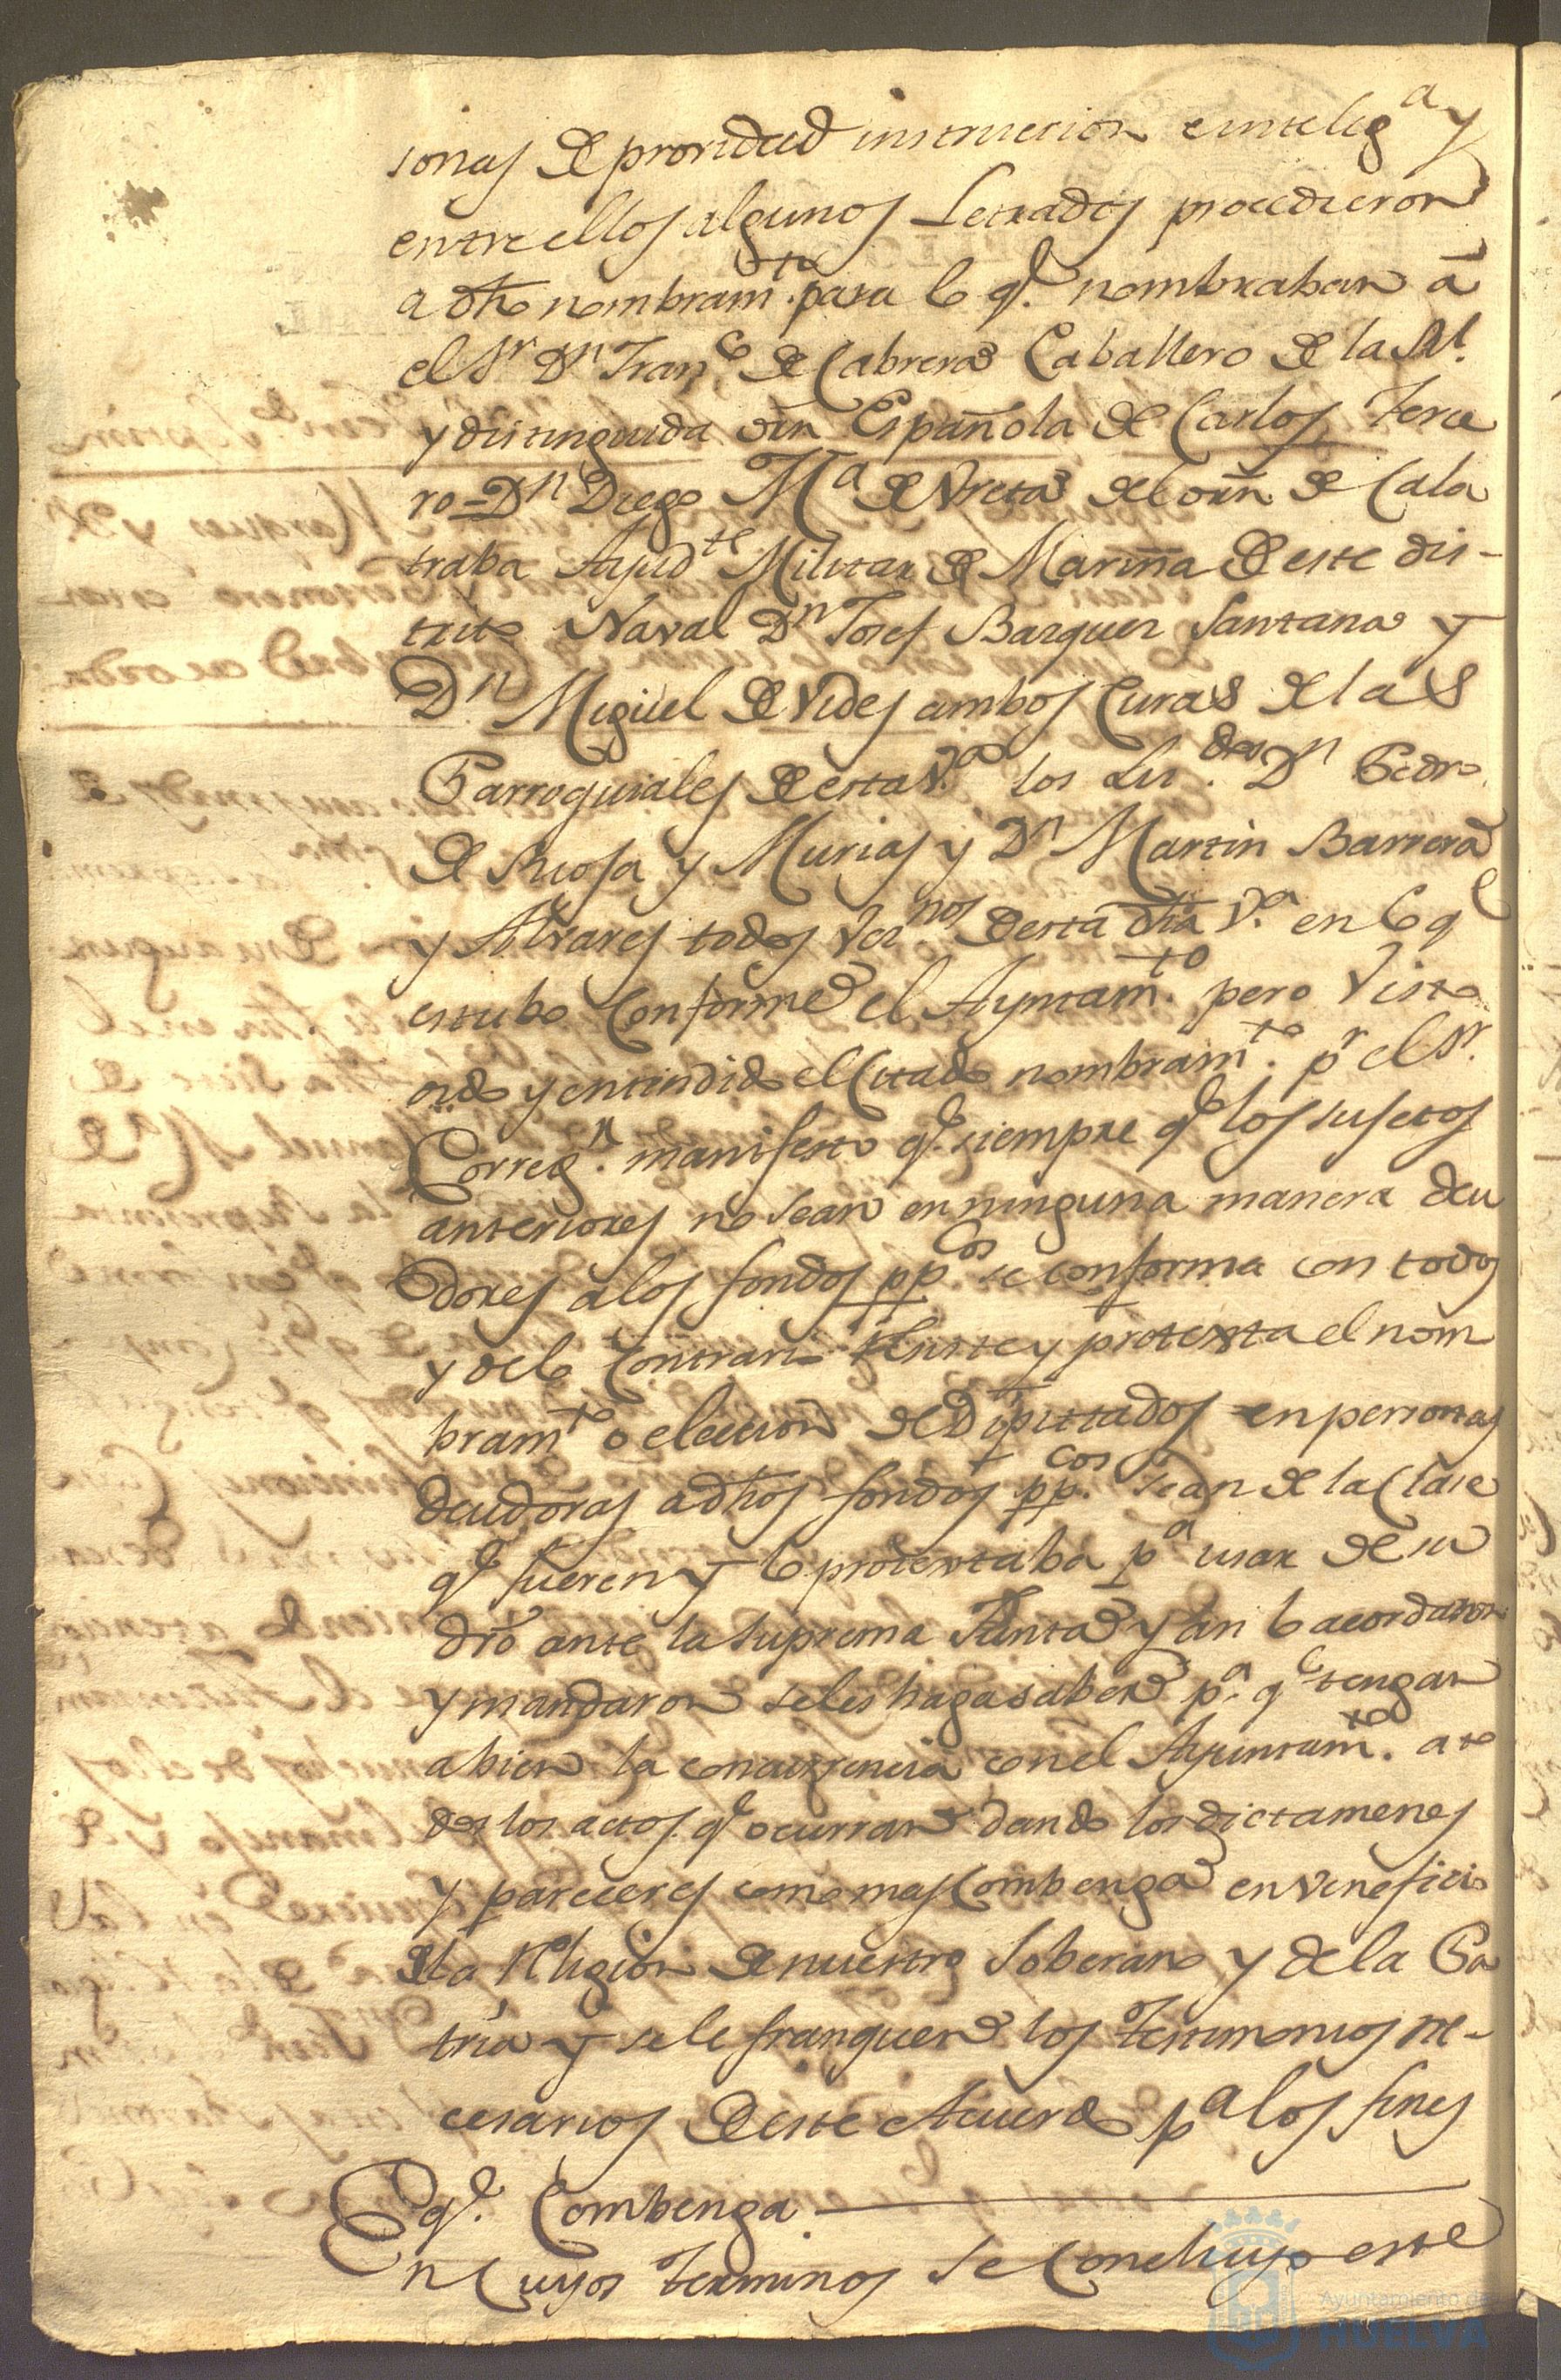 sonas de providad instruccion e intelig.ª y
entre ellos algunos Letrados procedieron
a dho nombram.to para lo q.e nombraban á
el S.r D.n Fran.co de Cabrera Caballero de la Rl.
y distinguida orn Española de Carlos Terce
ro = D.n Diego M.a de Ureta del orn de Cala
traba Ayud.te Militar de Marina de este dis-
trito Naval D.n Josef Barquer Santana y
D.n Miguel de Vides ambos Curas de las
Parroquiales de esta V.a los Lic.dos D.n Pedro
de Riosa y Murias y D.n Martin Barrera
y Alvares todos vec.nos desta dha V.a en lo q.e
estubo conforme el Ayuntam.to pero Visto
oido y entendido el citado nombram.to p.r el S.r
Correg.r manifesto q.e siempre q.e los sujetos
anteriores no sean en ninguna manera deu
dores a los fondos pp.cos se conforma con todos
y de lo contrario resiste y protexta el nom
bram.to o eleccion de Diputados en personas
deudoras a dhos fondos pp.cos sean de la clase
q.e fueren y lo protextaba p.a usar de su
dro ante la Suprema Junta y asi lo acordaron
y mandaron se les haga saber p.a q.e tengan
a bien la concurrencia con el Ayuntam.to a to
dos los actos q.e ocurran dando los dictamenes
y pareceres como mas combenga en veneficio
de la Religion de nuestro Soberano y de la Pa
tria y se le franqueen los Testimonios ne-
cesarios deste Acuerdo p.a los fines
q.e Combenga
En cuyos terminos se concluyo este
Ayuntamiento de
HUELVA